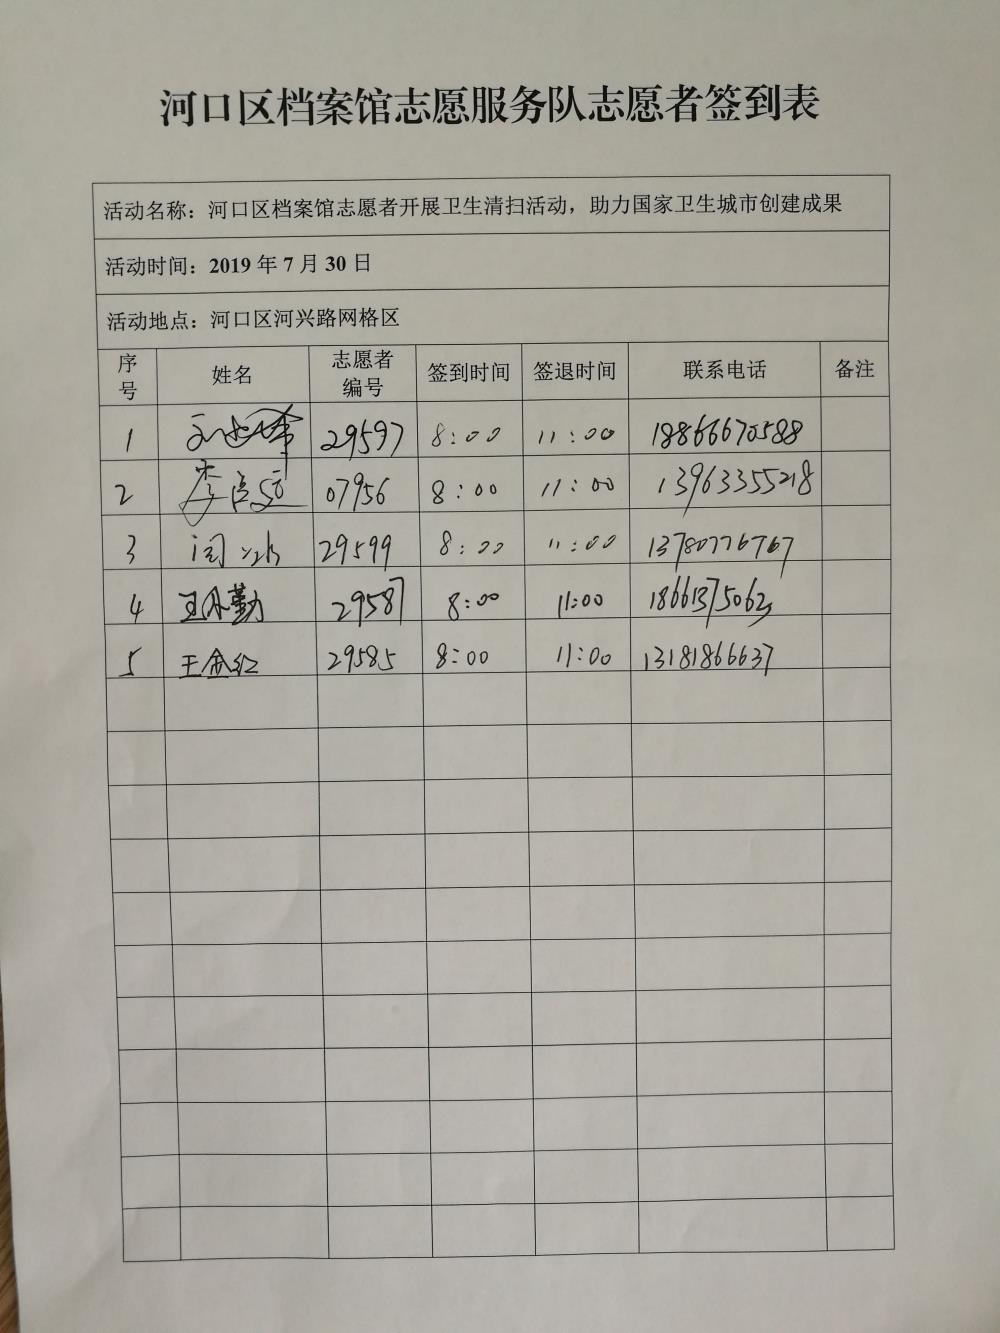 河口区档案馆志愿服务队志愿者签到表
活动名称：河口区档案馆志愿者开展卫生清扫活动，助力国家卫生城市创建成果
活动时间：2019 年 7 月 30 日
活动地点：河口区河兴路网格区
序号 姓名 志愿者编号 签到时间 签退时间 联系电话 备注
1 29597 8:00 11:00 18866670588
2 李 07956 8:00 11:00 13963355218
3 闫冰 29599 8:00 11:00 13780776767
4 王 勤 29587 8:00 11:00
5 王金红 29585 8:00 11:00 13181866637